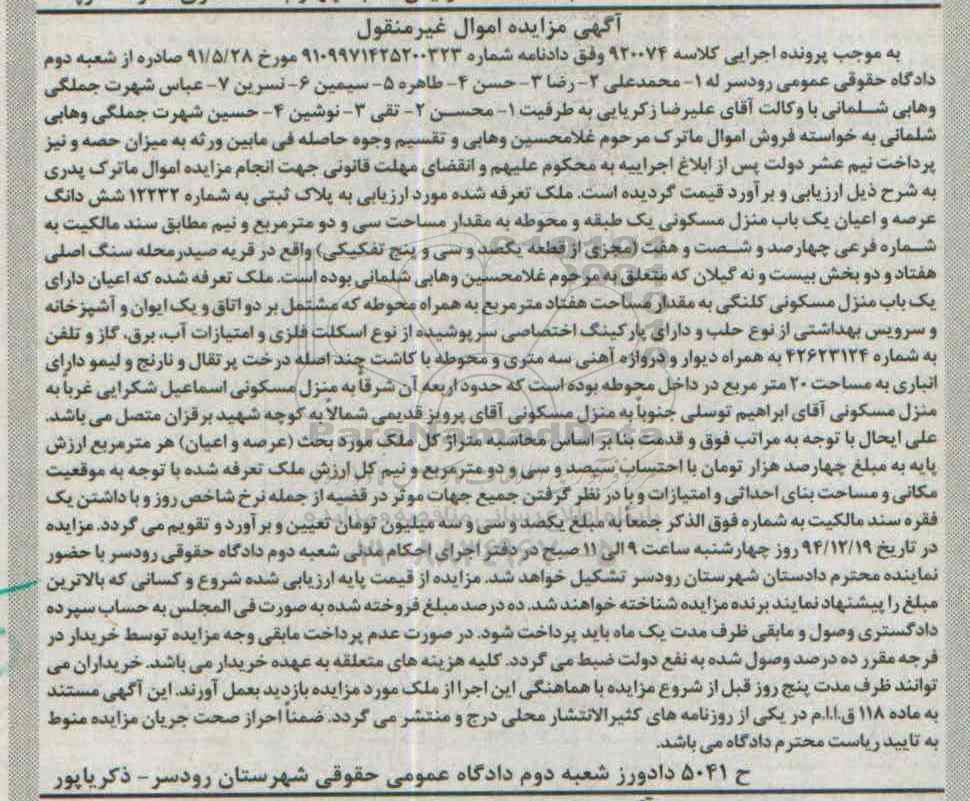 آگهی مزایده اموال غیرمنقول
به موجب پرونده اجرایی کلاسه ۹۲۰۰۷۴ وفق دادنامه شماره ۹۱۰۹۹۷۱۴۲۵۲۰۰۳۲۳ مورخ ۹۱/۵/۲۸ صادره از شعبه دوم
دادگاه حقوقی عمومی رودسر له ۱- محمدعلی ۲- رضا ۳- حسن ۴- طاهره ۵- سیمین ۶- نسرین ۷- عباس شهرت جملگی
وهابی شلمانی با وکالت آقای علیرضا زکریایی به طرفیت ۱- محسن ۲- تقی ۳- نوشین ۴- حسین شهرت جملگی وهابی
شلمانی به خواسته فروش اموال ماترک مرحوم غلامحسین وهابی و تقسیم وجوه حاصله فی مابین ورثه به میزان حصه و نیز
پرداخت نیم عشر دولت پس از ابلاغ اجراییه به محکوم علیهم و انقضای مهلت قانونی جهت انجام مزایده اموال ماترک پدری
به شرح ذیل ارزیابی و برآورد قیمت گردیده است. ملک تعرفه شده مورد ارزیابی به پلاک ثبتی به شماره ۱۲۲۳۲ شش دانگ
عرصه و اعیان یک باب منزل مسکونی یک طبقه و محوطه به مقدار مساحت سی و دو مترمربع و نیم مطابق سند مالکیت به
شماره فرعی چهارصد و شصت و هفت (مجزی از قطعه یکصد و سی و پنج تفکیکی) واقع در قریه صیدرمحله سنگ اصلی
هفتاد و دو بخش بیست و نه گیلان که متعلق به مرحوم غلامحسین وهابی شلمانی بوده است. ملک تعرفه شده که اعیان دارای
یک باب منزل مسکونی کلنگی به مقدار مساحت هفتاد مترمربع به همراه محوطه که مشتمل بر دو اتاق و یک ایوان و آشپزخانه
و سرویس بهداشتی از نوع حلب و دارای پارکینگ اختصاصی سرپوشیده از نوع اسکلت فلزی و امتیازات آب، برق، گاز و تلفن
به شماره ۴۲۶۲۳۱۲۴ به همراه دیوار و دروازه آهنی سه متری و محوطه با کاشت چند اصله درخت پرتقال و نارنج و لیمو دارای
انباری به مساحت ۲۰ متر مربع در داخل محوطه بوده است که حدود اربعه آن شرقاً به منزل مسکونی اسماعیل شکرایی غرباً به
منزل مسکونی آقای ابراهیم توسلی جنوباً به منزل مسکونی آقای پرویز قدیمی شمالاً به کوچه شهید برقزان متصل می باشد.
علی ایحال با توجه به مراتب فوق و قدمت بنا بر اساس محاسبه متراژ کل ملک مورد بحث (عرصه و اعیان) هر مترمربع ارزش
پایه به مبلغ چهارصد هزار تومان با احتساب سیصد و سی و دو مترمربع و نیم کل ارزش ملک تعرفه شده با توجه به موقعیت
مکانی و مساحت بنای احداثی و امتیازات و با در نظر گرفتن جمیع جهات موثر در قضیه از جمله نرخ شاخص روز و با داشتن یک
فقره سند مالکیت به شماره فوق الذکر جمعاً به مبلغ یکصد و سی و سه میلیون تومان تعیین و برآورد و تقویم می گردد. مزایده
در تاریخ ۹۴/۱۲/۱۹ روز چهارشنبه ساعت ۹ الی ۱۱ صبح در دفتر اجرای احکام مدنی شعبه دوم دادگاه حقوقی رودسر با حضور
نماینده محترم دادستان شهرستان رودسر تشکیل خواهد شد. مزایده از قیمت پایه ارزیابی شده شروع و کسانی که بالاترین
مبلغ را پیشنهاد نمایند برنده مزایده شناخته خواهند شد. ده درصد مبلغ فروخته شده به صورت فی المجلس به حساب سپرده
دادگستری وصول و مابقی ظرف مدت یک ماه باید پرداخت شود. در صورت عدم پرداخت مابقی وجه مزایده توسط خریدار در
فرجه مقرر ده درصد وصول شده به نفع دولت ضبط می گردد. کلیه هزینه های متعلقه به عهده خریدار می باشد. خریداران می
توانند ظرف مدت پنج روز قبل از شروع مزایده با هماهنگی این اجرا از ملک مورد مزایده بازدید بعمل آورند. این آگهی مستند
به ماده ۱۱۸ ق.ا.ا.م در یکی از روزنامه های کثیرالانتشار محلی درج و منتشر می گردد. ضمناً احراز صحت جریان مزایده منوط
به تایید ریاست محترم دادگاه می باشد.
ح ۵۰۴۱ دادورز شعبه دوم دادگاه عمومی حقوقی شهرستان رودسر- ذکریاپور